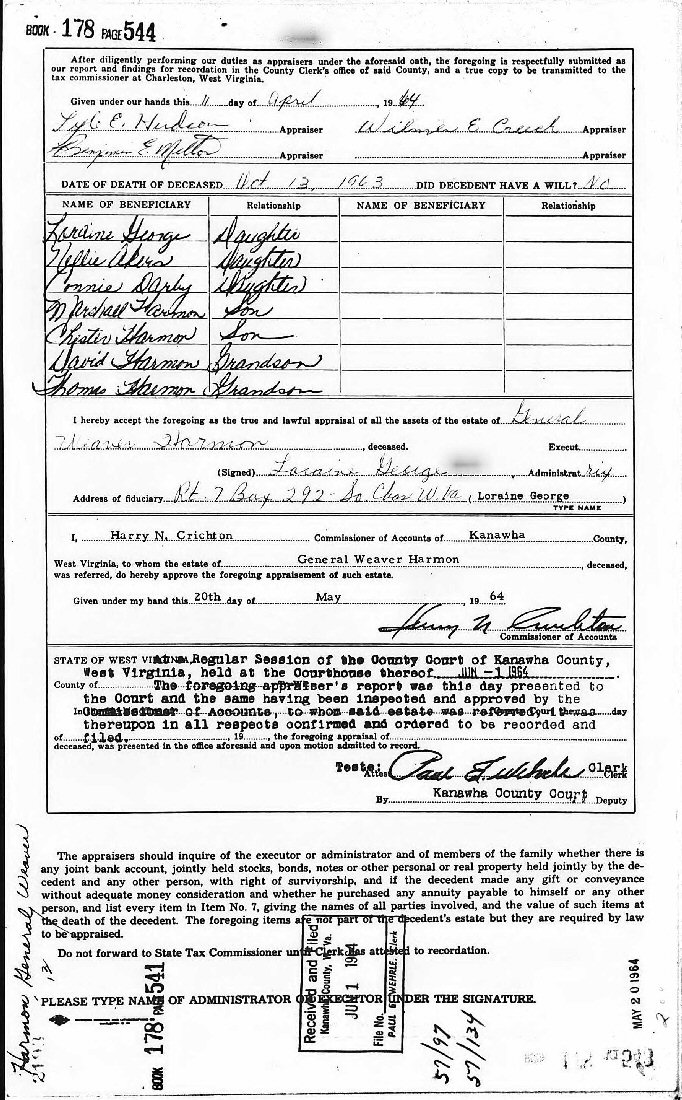 BOOK 178 PAGE 544
After diligently performing our duties as appraisers under the aforesaid oath, the foregoing is respectfully submitted as
our report and findings for recordation in the County Clerk's office of said County, and a true copy to be transmitted to the
tax commissioner at Charleston, West Virginia.
Given under our hands this 11 day of April, 1964
E. Hudson Appraiser Wilmer E Creech Appraiser
Benjamin E Melton Appraiser Appraiser
DATE OF DEATH OF DECEASED Oct 13, 1963 DID DECEDENT HAVE A WILL? No
NAME OF BENEFICIARY Relationship NAME OF BENEFICIARY Relationship
Loraine George Daughter
Nellie Akers Daughter
Connie Darby Daughter
Marshall Harmon Son
Chester Harmon Son
David Harmon Grandson
Thomas Harmon Grandson
I hereby accept the foregoing as the true and lawful appraisal of all the assets of the estate of General
Weaver Harmon, deceased. Execut
(Signed) Loraine George, Administratrix
Address of fiduciary Rt. 7 Box 292 - So Chas W. Va, Loraine George )
TYPE NAME
I, Harry N. Crichton Commissioner of Accounts of Kanawha County,
West Virginia, to whom the estate of General Weaver Harmon, deceased,
was referred, do hereby approve the foregoing appraisement of such estate.
Given under my hand this 20th day of May, 1964
Harry N Crichton
Commissioner of Accounts
STATE OF WEST VIRGINIA, At a Regular Session of the County Court of Kanawha County,
West Virginia, held at the Courthouse thereof JUN -1 1964
County of The foregoing appraiser's report was this day presented to
the Court and the same having been inspected and approved by the
In Commissioner of Accounts, to whom said estate was referred, it was day
thereupon in all respects confirmed and ordered to be recorded and
of filed., 19, the foregoing appraisal of
deceased, was presented in the office aforesaid and upon motion admitted to record.
Teste: Paul E. Wehrle Clerk
Attest Clerk
By Kanawha County Court Deputy
The appraisers should inquire of the executor or administrator and of members of the family whether there is
any joint bank account, jointly held stocks, bonds, notes or other personal or real property held jointly by the de-
cedent and any other person, with right of survivorship, and if the decedent made any gift or conveyance
without adequate money consideration and whether he purchased any annuity payable to himself or any other
person, and list every item in Item No. 7, giving the names of all parties involved, and the value of such items at
the death of the decedent. The foregoing items are not part of the decedent's estate but they are required by law
to be appraised.
Do not forward to State Tax Commissioner until Clerk has attested to recordation.
PLEASE TYPE NAME OF ADMINISTRATOR OR EXECUTOR UNDER THE SIGNATURE.
Harmon General Weaver
BOOK 178 PAGE 541
Received and filed
Kanawha County, W. Va.
JUN 1 1964
File No.
PAUL E. WEHRLE, Clerk
57/97
57/134
MAY 20 1964